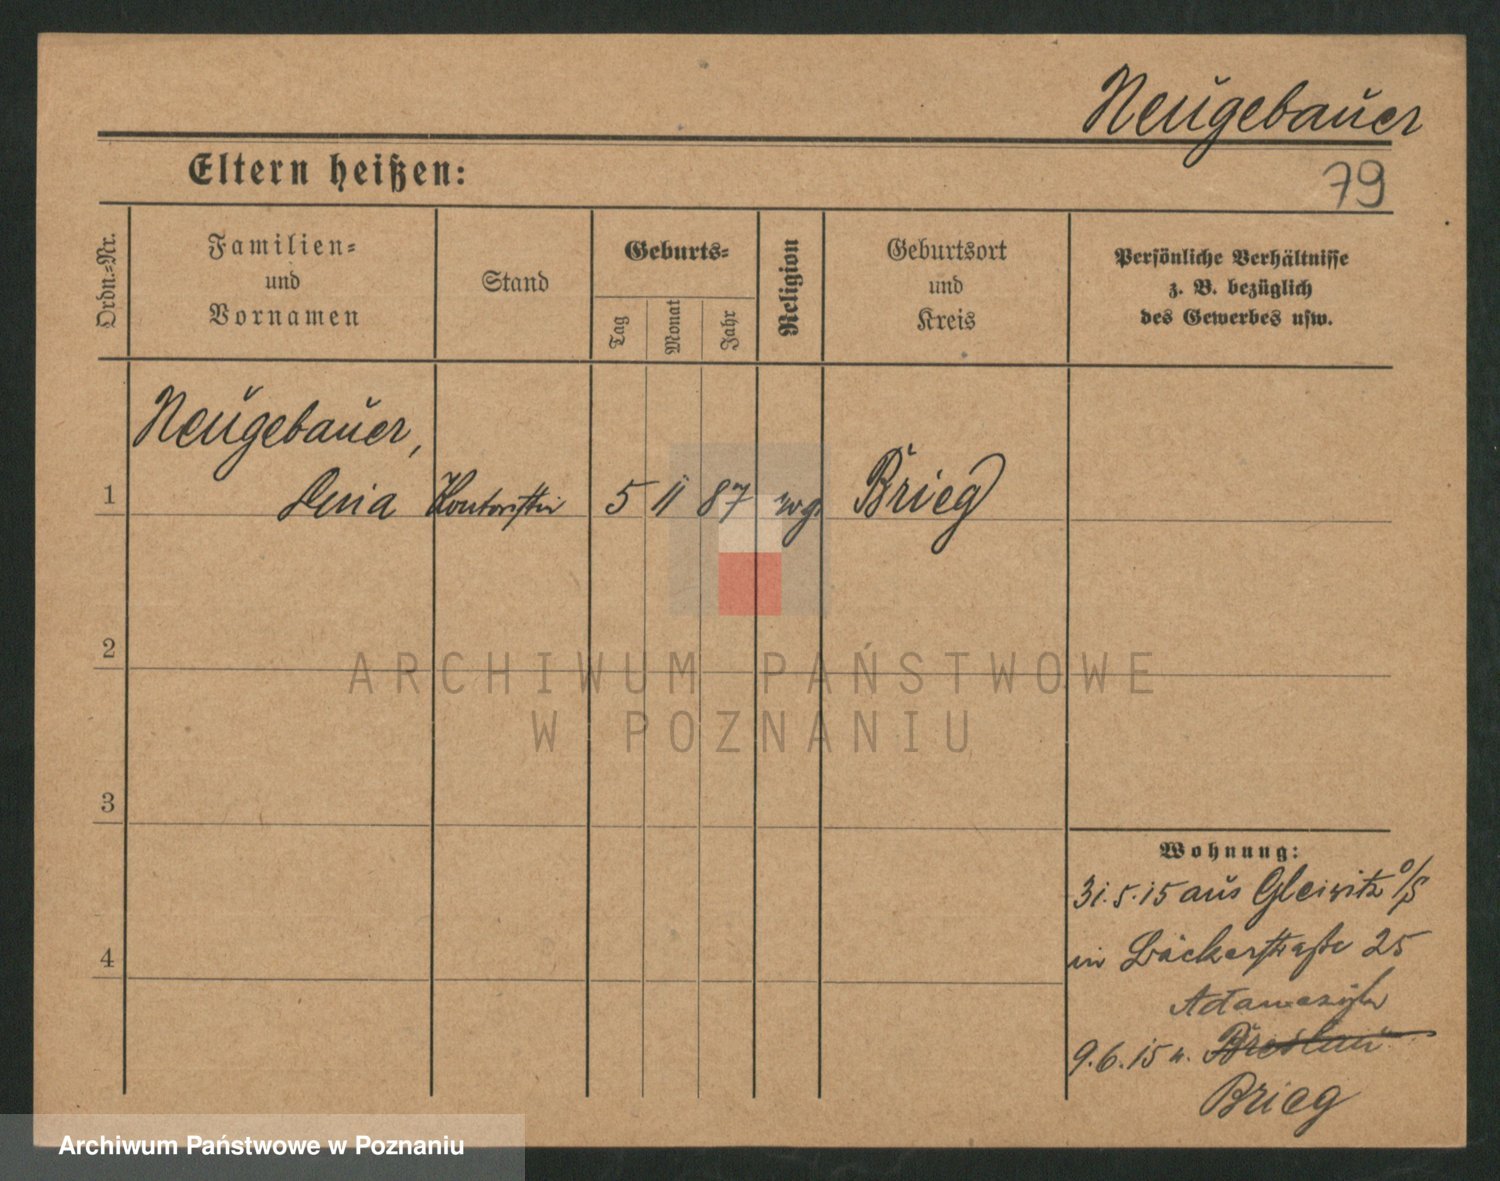 Neugebauer
Eltern heißen:
79
Ordn.=Nr.
Familien=
und
Vornamen
Stand
Geburts=
Tag
Monat
Jahr
Religion
Geburtsort
und
Kreis
Persönliche Verhältnisse
z. B. bezüglich
des Gewerbes usw.
Neugebauer,
1 Kontoristin 5 11 87 Brieg
2
3
4
Wohnung:
31.5.15 aus Gleiwitz O/S
in Bäckerstraße 25
9.6.15 n. Breslau
Brieg
ARCHIWUM PAŃSTWOWE
W POZNANIU
Archiwum Państwowe w Poznaniu